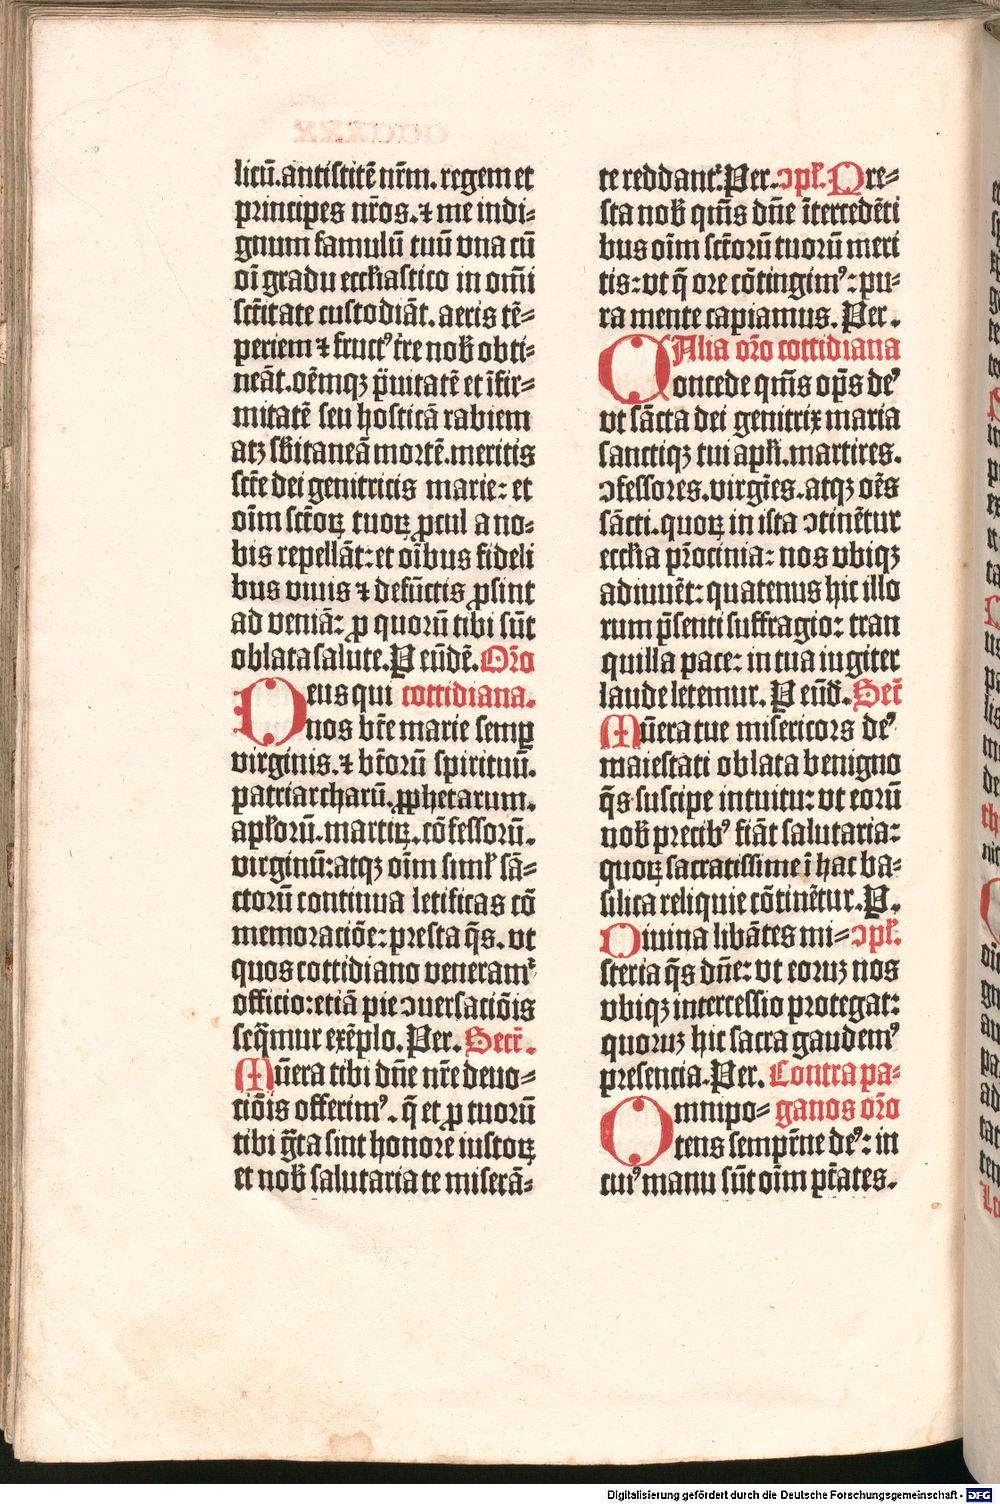 licū. antistitē nr̄m. regem et
principes nr̄os. ⁊ me indi-
gnum famulū tuū vna cū
oī gradu eccl̄iastico in om̄i
sc̄titate custodiāt. aeris tē-
periem ⁊ fructꝰ tr̄e nob̄ obti-
neāt. oēmqꝫ p̄uitatē et īfir-
mitatē seu hosticā rabiem
atꝫ sb̄itaneā mortē. meritis
sct̄e dei genitricis marie: et
oīm sct̄oꝝ tuoꝝ ꝓcul a no-
bis repellāt: et oībus fideli
bus viuis ⁊ defūctis ꝓsint
ad veniā: ꝓ quorū tibi sūt
oblata salute. P eūdē. Or̄o
Deus qui cottidiana.
nos bt̄e marie semꝑ
virginis. ⁊ bt̄orū spirituū.
patriarcharū. ꝓphetarum.
apl̄orū. martiꝝ. cōfessorū.
virginū: atqꝫ oīm siml̄ sā-
ctorū continua letificas cō
memoraciōe: presta q̄s. vt
quos cottidiano veneramꝰ
officio: etiā pie ɔuersaciōis
seq̄mur exēplo. Per. Secr̄.
Mūera tibi dn̄e nr̄e deuo-
tiōis offerimꝰ. q̄ et ꝓ tuorū
tibi gr̄ta sint honore iustoꝝ
et nob̄ salutaria te miserā-
te reddant᷑. Per. ɔpl̄. Pre-
sta nob̄ qm̄s dn̄e ītercedēti
bus oīm sct̄orū tuorū meri
tis: vt q̄ ore cōtingimꝰ: pu-
ra mente capiamus. Per.
Alia or̄o cottidiana
Concede qm̄s op̄s deꝰ
vt sācta dei genitrix maria
sanctiqꝫ tui apl̄i. martires.
ɔfessores. virgīes. atqꝫ oēs
sācti. quoꝝ in ista ɔtinētur
eccl̄ia pr̄ocinia: nos vbiqꝫ
adiuuēt: quatenus hic illo
rum p̄senti suffragio: tran
quilla pace: in tua iugiter
laude letemur. P eūd̄. Secr̄
Mūera tue misericors deꝰ
maiestati oblata benigno
q̄s suscipe intuitu: vt eorū
nob̄ precibꝰ fiāt salutaria:
quoꝝ sacratissime ī hac ba-
silica reliquie cōtinētur. P.
Diuina libātes mi- ɔpl̄.
steria q̄s dn̄e: vt eoruꝫ nos
vbiqꝫ intercessio protegat:
quoruꝫ hic sacra gaudemꝰ
presencia. Per. Contra pa-
Omnipo- ganos or̄o
tens sempr̄ne deꝰ: in
cuiꝰ manu sūt oīm pt̄ates.
Digitalisierung gefördert durch die Deutsche Forschungsgemeinschaft - DFG